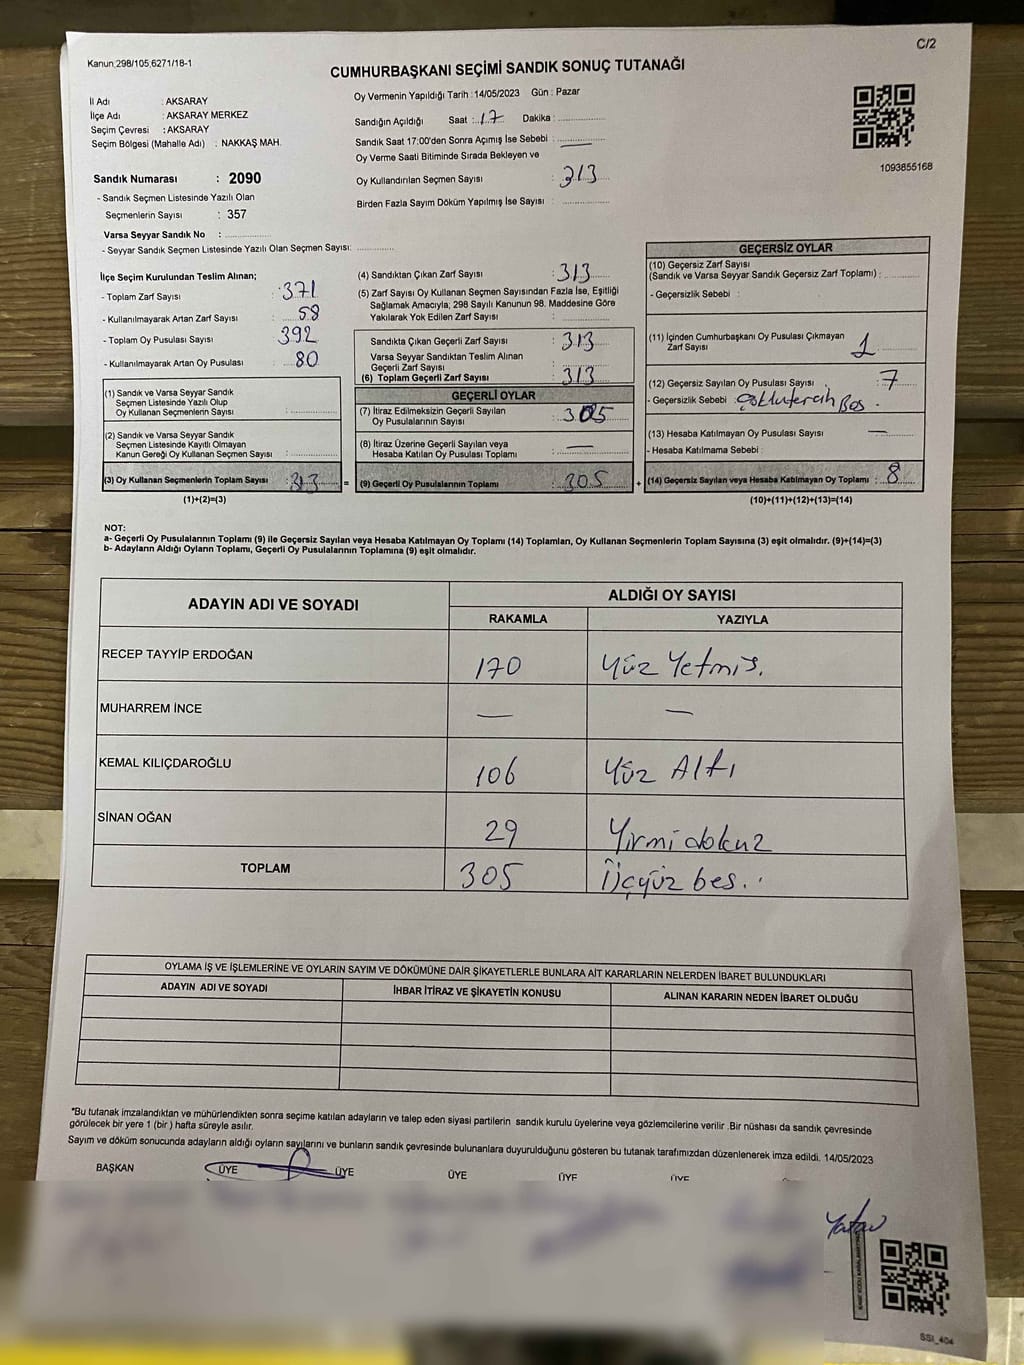 C/2
Kanun 298/105,6271/18-1
CUMHURBAŞKANI SEÇİMİ SANDIK SONUÇ TUTANAĞI
İl Adı : AKSARAY
İlçe Adı : AKSARAY MERKEZ
Seçim Çevresi : AKSARAY
Seçim Bölgesi (Mahalle Adı) : NAKKAŞ MAH.
Sandık Numarası : 2090
- Sandık Seçmen Listesinde Yazılı Olan
Seçmenlerin Sayısı : 357
Varsa Seyyar Sandık No :
- Seyyar Sandık Seçmen Listesinde Yazılı Olan Seçmen Sayısı:
Oy Vermenin Yapıldığı Tarih : 14/05/2023 Gün : Pazar
Sandığın Açıldığı Saat : 17 Dakika :
Sandık Saat 17:00'den Sonra Açımış İse Sebebi : —
Oy Verme Saati Bitiminde Sırada Bekleyen ve
Oy Kullandırılan Seçmen Sayısı : 313
Birden Fazla Sayım Döküm Yapılmış İse Sayısı :
1093855168
İlçe Seçim Kurulundan Teslim Alınan;
- Toplam Zarf Sayısı : 371
- Kullanılmayarak Artan Zarf Sayısı : 58
- Toplam Oy Pusulası Sayısı : 392
- Kullanılmayarak Artan Oy Pusulası : 80
(1) Sandık ve Varsa Seyyar Sandık
Seçmen Listesinde Yazılı Olup
Oy Kullanan Seçmenlerin Sayısı :
(2) Sandık ve Varsa Seyyar Sandık
Seçmen Listesinde Kayıtlı Olmayan
Kanun Gereği Oy Kullanan Seçmen Sayısı :
(3) Oy Kullanan Seçmenlerin Toplam Sayısı : 313 =
(1)+(2)=(3)
(4) Sandıktan Çıkan Zarf Sayısı : 313
(5) Zarf Sayısı Oy Kullanan Seçmen Sayısından Fazla İse, Eşitliği
Sağlamak Amacıyla; 298 Sayılı Kanunun 98. Maddesine Göre
Yakılarak Yok Edilen Zarf Sayısı :
Sandıkta Çıkan Geçerli Zarf Sayısı : 313
Varsa Seyyar Sandıktan Teslim Alınan
Geçerli Zarf Sayısı :
(6) Toplam Geçerli Zarf Sayısı : 313
GEÇERLİ OYLAR
(7) İtiraz Edilmeksizin Geçerli Sayılan
Oy Pusulalarının Sayısı : 305
(8) İtiraz Üzerine Geçerli Sayılan veya
Hesaba Katılan Oy Pusulası Toplamı : —
(9) Geçerli Oy Pusulalarının Toplamı : 305 +
GEÇERSİZ OYLAR
(10) Geçersiz Zarf Sayısı
(Sandık ve Varsa Seyyar Sandık Geçersiz Zarf Toplamı) :
- Geçersizlik Sebebi :
(11) İçinden Cumhurbaşkanı Oy Pusulası Çıkmayan
Zarf Sayısı 1
(12) Geçersiz Sayılan Oy Pusulası Sayısı : 7
- Geçersizlik Sebebi : Boş.
(13) Hesaba Katılmayan Oy Pusulası Sayısı : —
- Hesaba Katılmama Sebebi :
(14) Geçersiz Sayılan veya Hesaba Katılmayan Oy Toplamı : 8
(10)+(11)+(12)+(13)=(14)
NOT:
a- Geçerli Oy Pusulalarının Toplamı (9) ile Geçersiz Sayılan veya Hesaba Katılmayan Oy Toplamı (14) Toplamları, Oy Kullanan Seçmenlerin Toplam Sayısına (3) eşit olmalıdır. (9)+(14)=(3)
b- Adayların Aldığı Oyların Toplamı, Geçerli Oy Pusulalarının Toplamına (9) eşit olmalıdır.
ADAYIN ADI VE SOYADI ALDIĞI OY SAYISI
RAKAMLA YAZIYLA
RECEP TAYYİP ERDOĞAN 170 Yüz Yetmiş.
MUHARREM İNCE — —
KEMAL KILIÇDAROĞLU 106 Yüz Altı
SİNAN OĞAN 29 Yirmi dokuz
TOPLAM 305 Üçyüz beş.
OYLAMA İŞ VE İŞLEMLERİNE VE OYLARIN SAYIM VE DÖKÜMÜNE DAİR ŞİKAYETLERLE BUNLARA AİT KARARLARIN NELERDEN İBARET BULUNDUKLARI
ADAYIN ADI VE SOYADI İHBAR İTİRAZ VE ŞİKAYETİN KONUSU ALINAN KARARIN NEDEN İBARET OLDUĞU
*Bu tutanak imzalandıktan ve mühürlendikten sonra seçime katılan adayların ve talep eden siyasi partilerin sandık kurulu üyelerine veya gözlemcilerine verilir .Bir nüshası da sandık çevresinde
görülecek bir yere 1 (bir) hafta süreyle asılır.
Sayım ve döküm sonucunda adayların aldığı oyların sayılarını ve bunların sandık çevresinde bulunanlara duyurulduğunu gösteren bu tutanak tarafımızdan düzenlenerek imza edildi. 14/05/2023
BAŞKAN ÜYE ÜYE ÜYE ÜYE ÜYE
SSI_404